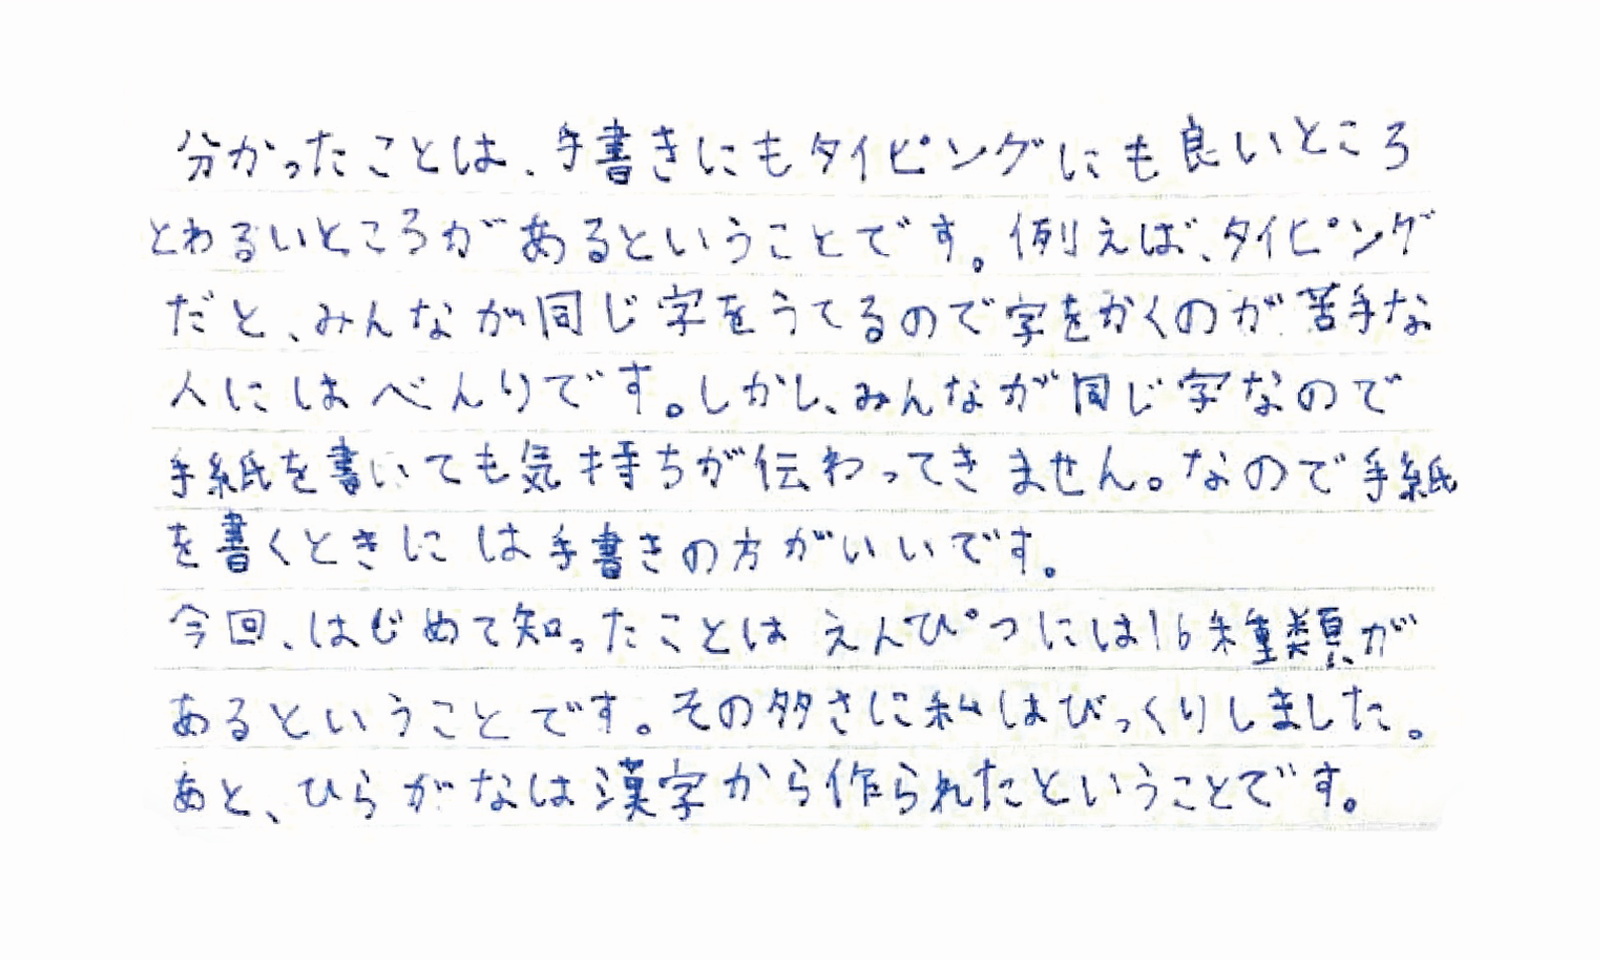 分かったことは、手書きにもタイピングにも良いところ
とわるいところがあるということです。例えば、タイピング
だと、みんなが同じ字をうてるので字をかくのが苦手な
人にはべんりです。しかし、みんなが同じ字なので
手紙を書いても気持ちが伝わってきません。なので手紙
を書くときには手書きの方がいいです。
今回、はじめて知ったことはえんぴつには16種類が
あるということです。その多さに私はびっくりしました。
あと、ひらがなは漢字から作られたということです。